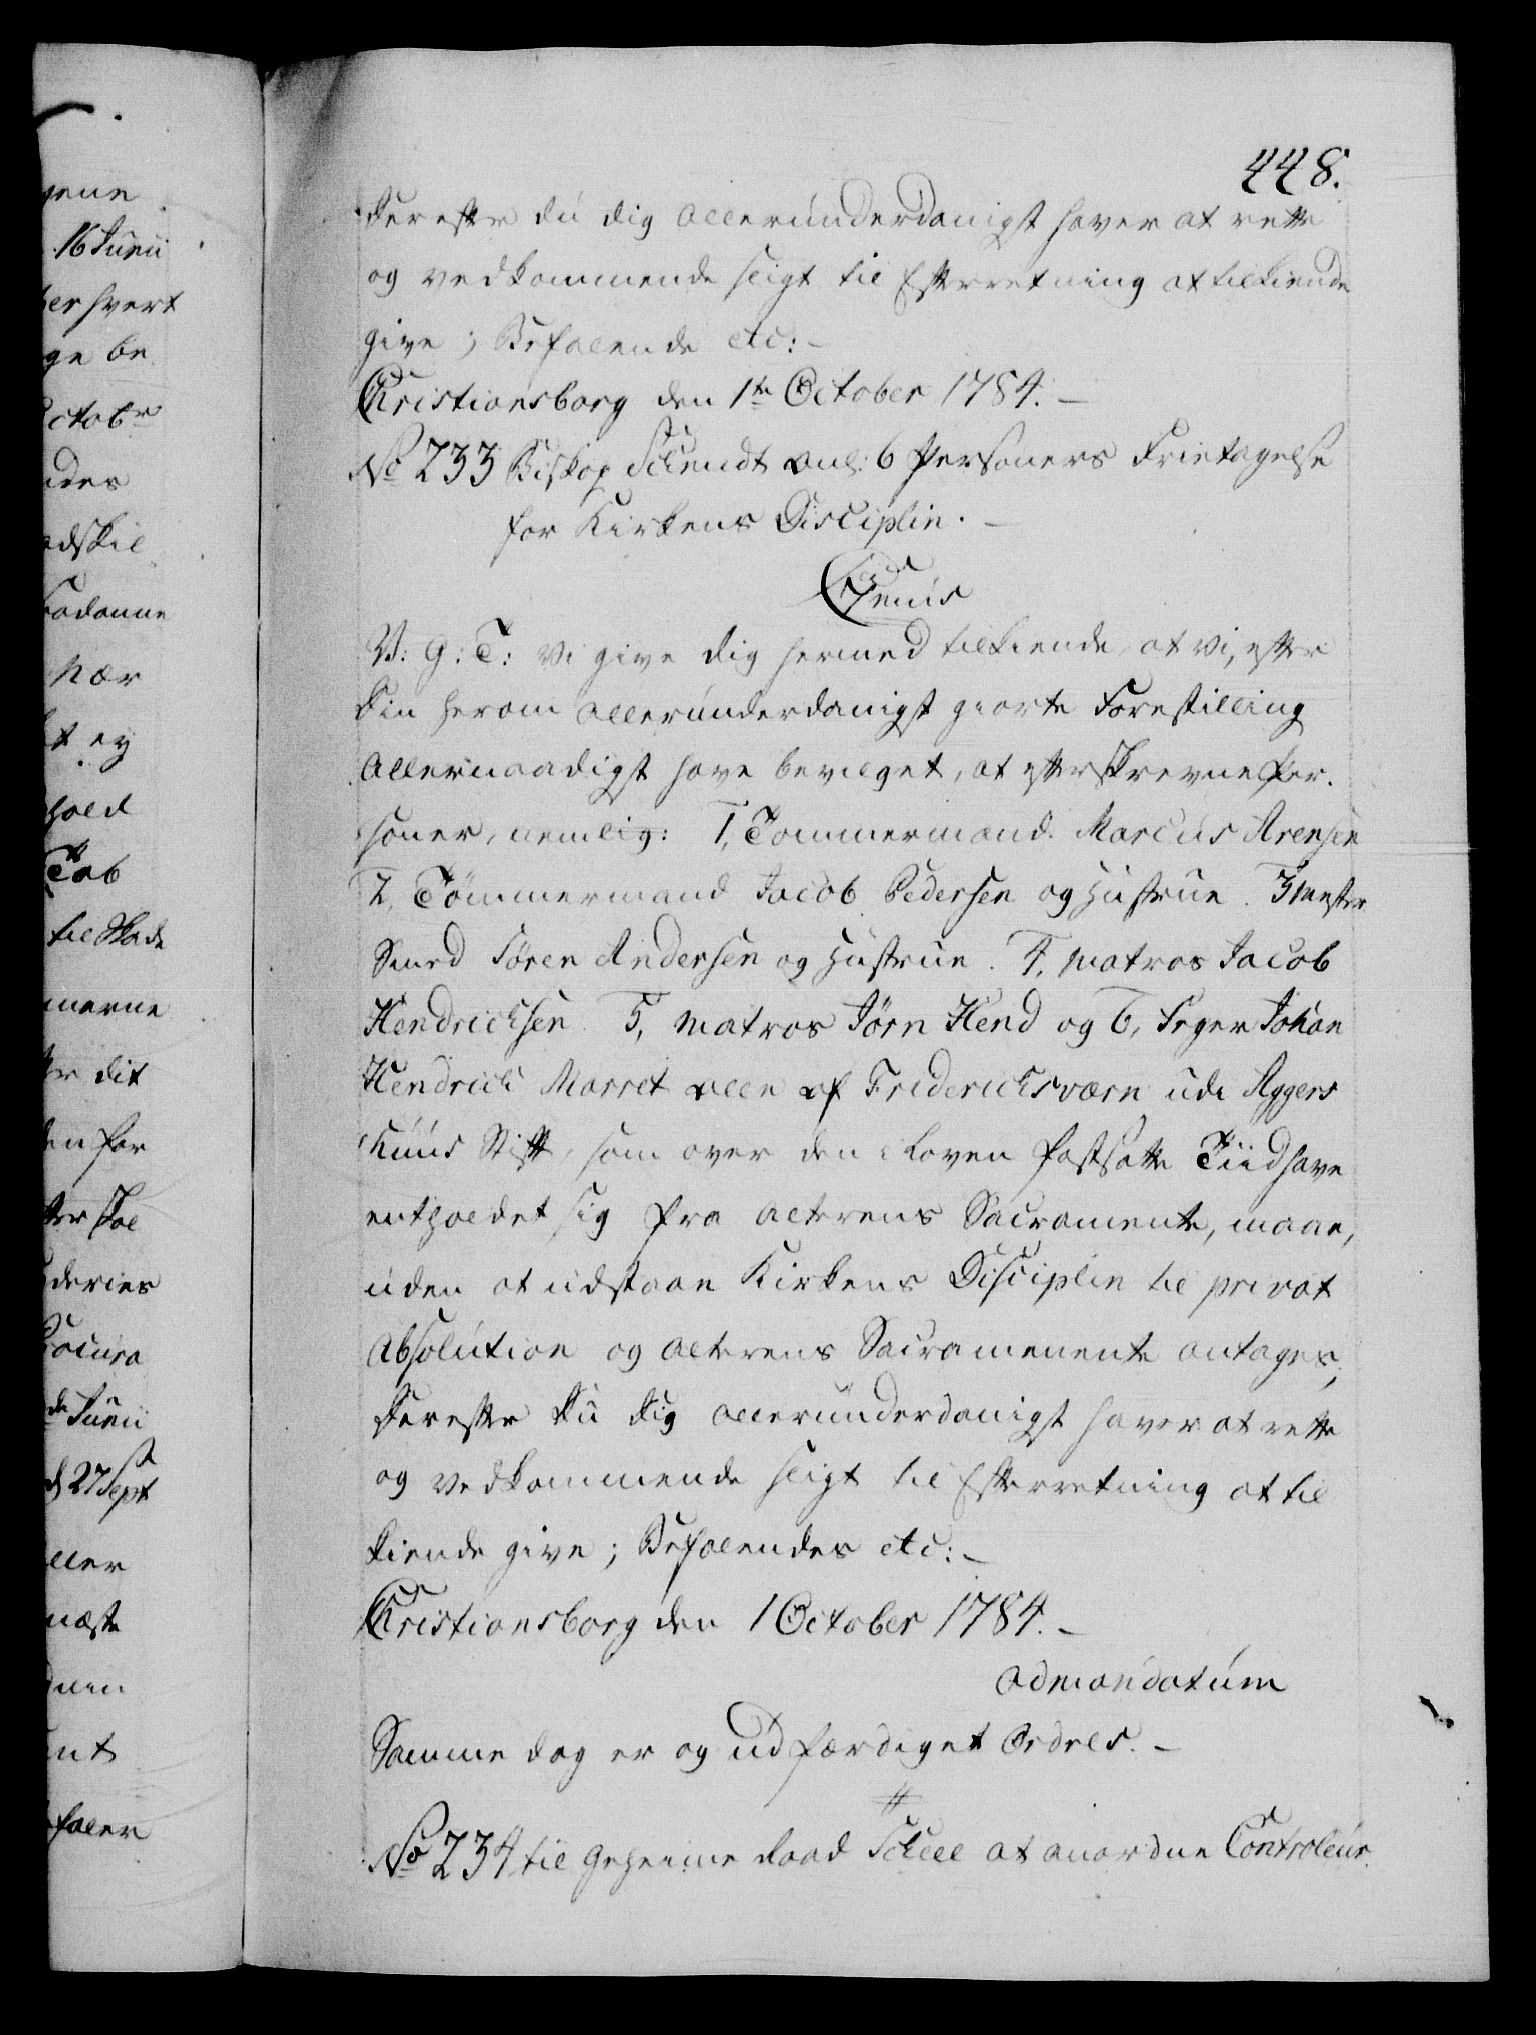 448.
derefter du dig allerunderdanigst haver at rette
og vedkommende sligt til Efterretning at tilkiende
give; Befalende etc:-
Christiansborg den 1te October 1784.-
No 233 Biskop Schmidt anl: 6 Personers Frietagelse
for Kirkens Disciplin.-
C7mus
V: G: T: Vi give dig hermed tilkiende, at Vi, efter
din herom allerunderdanigst giorte Forestilling
allernaadigst have bevilget, at efterskrevne Per-
soner, nemlig: 1, Tømmermand Marcus Arensen
2, Tømmermand Jacob Pedersen og Hustrue. 3 Mester
Smed Søren Andersen og Hustrue. 4, Matros Jacob
Hendrichsen. 5, Matros Jørn Hend og 6, Johan
Hendrich Marret alle af Friderichsværn udi Aggers
huus Stift, som over den i Loven fastsatte Tiid have
entholdet sig fra alterens Sacramente, maae,
uden at udstaae Kirkens Disciplin til privat
Absolution og alterens Sacramenente antages;
derefter du dig allerunderdanigst haver at rette
og vedkommende sligt til Efterretning at til
kiende give; Befalendes etc:-
Christiansborg den 1 October 1784.-
admandatum
Samme dag er og udfærdiget Ordres.-
No 234 til Geheime Raad Scheel at anordne Controleur
gene
16 Junii
er hvert
ge be
octobr
ades
adskil
saadanne
nær
t ey
hold
Tab
til Skade
merne
er dit
en for
ter skal
deries
de Junii
d 27 Sept
ller
næste
nt
faler